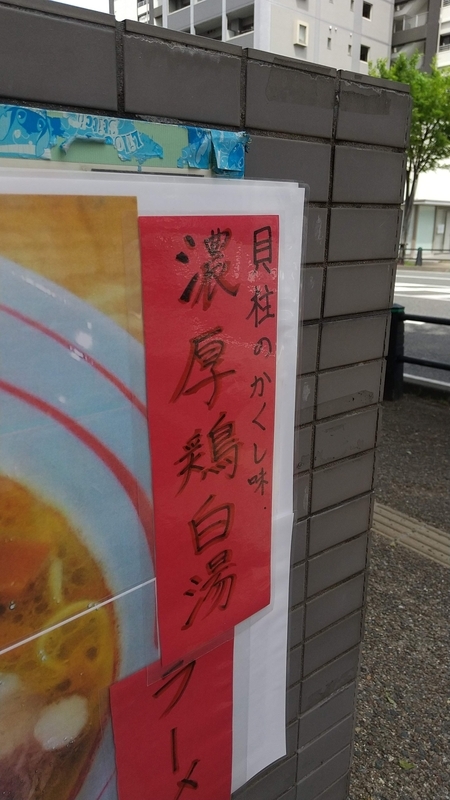 貝柱のかくし味.
濃厚鶏白湯
ラーメ